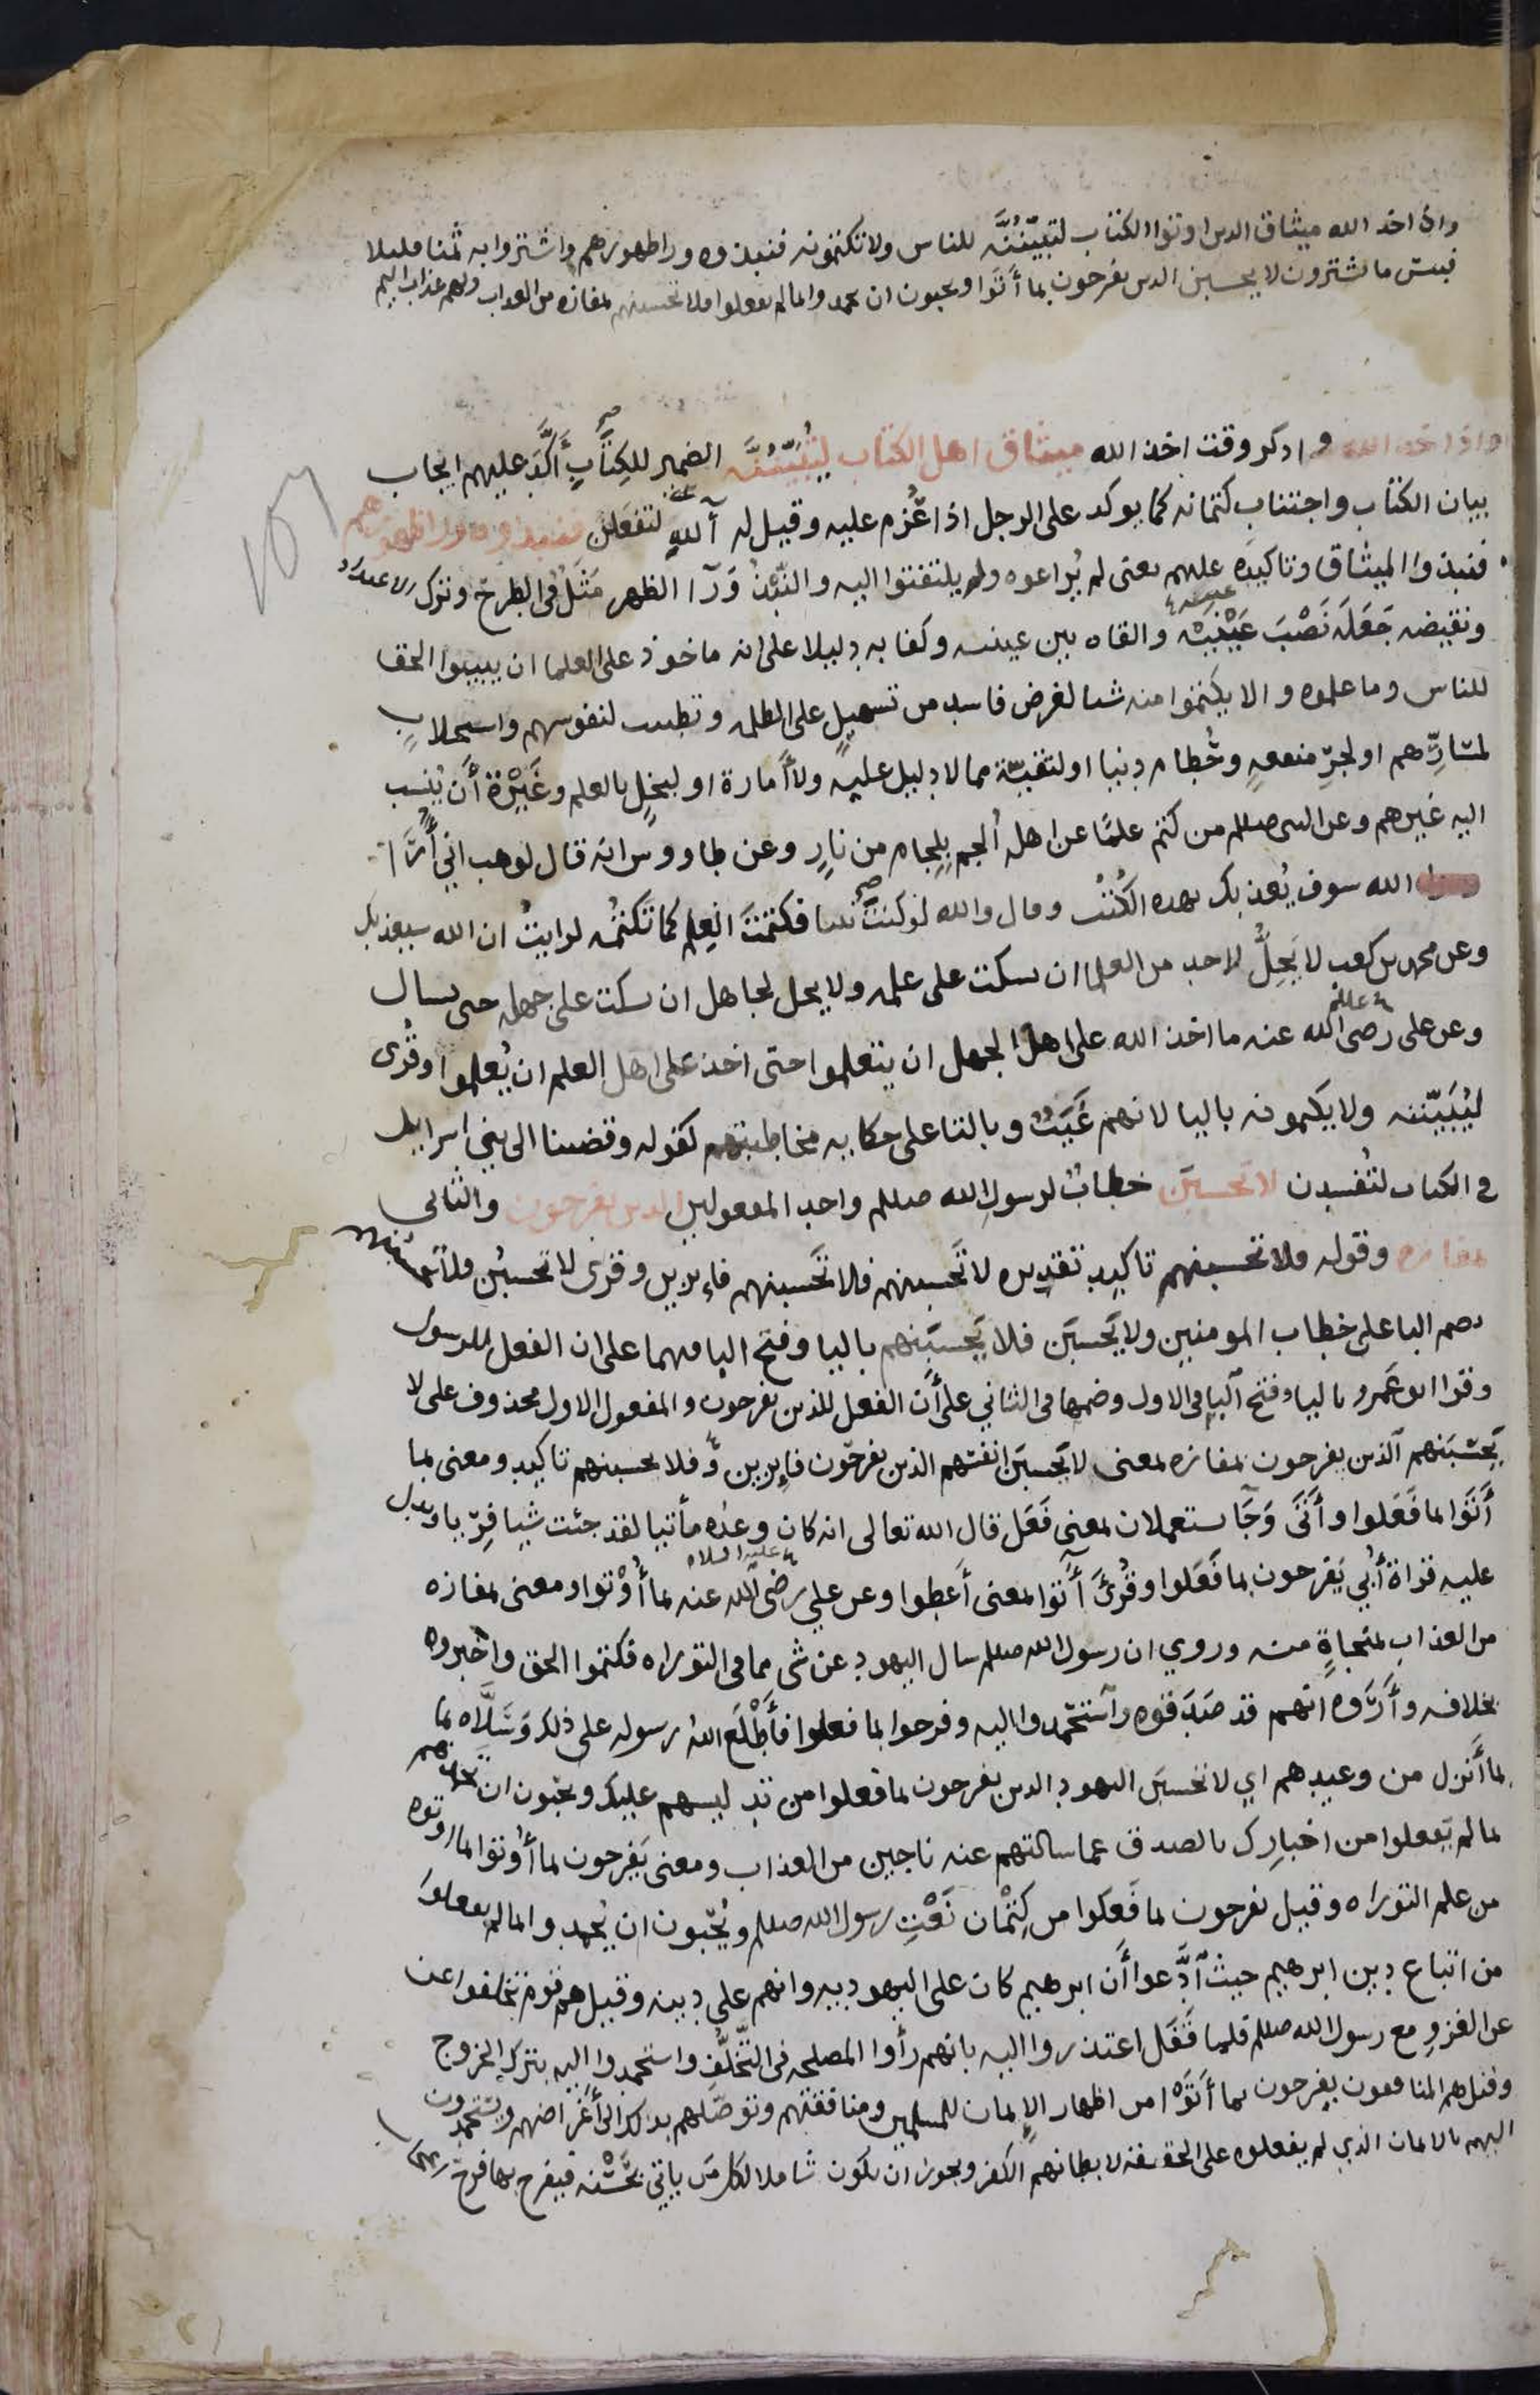 واذ اخد الله ميثاق الدين اوتوا الكتاب لتبيننه للناس ولا تكتمونه فنبذوه ورا ظهورهم واشتروا به ثمنا قليلا
فبيس ما يشترون لا يحسبن الدين يفرحون بما أتوا ويحبون ان يحمدوا بما لم يفعلوا فلا تحسبنهم بمفازه من العداب ولهم عذاب اليم
واذا اخد الله واذكر وقت اخذ الله ميثاق اهل الكتاب لتُبَيِّنُنَّه الضمير للكِتَابِ أَكَّدَ عليهم ايجاب
بيان الكتاب واجتناب كتمانه كما يوكد على الرجل اذا عُزم عليه وقيل له آلله لتفعلن فنبذوه ورا ظهورهم
فنبذوا الميثاق وتاكيده عليهم يعنى لم يُراعوه ولم يلتفتوا اليه والنَّبْذُ وَرَآ الظهر مَثَلٌ فى الطرح وترك الاعتداد
ونقيضه جَعَلَه نَصْبَ عَيْنَيْه والقاه بين عينيه وكفا به دليلا على انه ماخوذ على العلما ان يبينوا الحق
للناس وما علموه والا يكتموا منه شيا لغرض فاسد من تسهيلٍ على الظلمه وتطييب لنفوسهم واستجلابٍ
لمَسَارِّهم او لجرِّ منفعهٍ وحُطام دنيا او لتقيّة مما لا دليل عليه ولا أَمارة او لبخلٍ بالعلم وغَيْرَة أَن يُنسب
اليه غيرهم وعن النبى صللم من كتم علمًا عن اهله أُلجم بِلِجام من نارٍ وعن طاووس انه قال لوهب اني أَرَا
الله سوف يُعذبك بهذه الكُتُب وقال والله لو كنتَ نبيا فكتمتَ العِلم كما تَكتمُه لرايتُ ان الله سيعذبك
وعن محمد بن كعب لا يَحِلُّ لاحد من العلما ان يسكت على علمه ولا يحل لجاهل ان يسكت على جهله حتى يسال
وعن على رضى الله عنه ما اخذ الله على اهل الجهل ان يتعلموا حتى اخذ على اهل العلم ان يُعلموا وقُرى
ليُبَيِّننه ولا يكتمونه باليا لانهم غَيَبٌ وبالتا على حكايه مخاطبتهم كقوله وقضينا الى بني اسرايل
في الكتاب لتُفسدن لا تحسبَن خطابٌ لرسول الله صللم واحد المفعولين الدين يفرحون والثانى
بمفازه وقوله فلا تحسبنهم تاكيد تقديره لا تَحسبنهم فلا تَحسبنهم فايزين وقرى لا تحسبُن فلا تحسبُنهم
بضم البا على خطاب المومنين ولا يَحسبَن فلا يَحسبَنهم باليا وفتح البا فيهما على ان الفعل للرسول
وقرا ابو عَمرو باليا وفتح البا فى الاول وضمها فى الثاني على أَن الفعل للذين يفرحون والمفعول الاول محذوف على لا
يَحسَبَنهم الذين يفرحون بمفازه بمعنى لا يَحسبَن انفسهم الذين يفرحون فايزين و فلا يحسبنهم تاكيد ومعنى بما
أَتَوا بما فَعَلوا وأَتَى وَجَآ يستعملان بمعنى فَعَل قال الله تعالى انه كان وعدُه مأتيا لقد جئت شيا فريّا ويدل
عليه قراة أُبيّ يَفرحون بما فَعَلوا وقُرئَ آتوا بمعنى أَعطوا وعن علي رضى الله عنه بما أُوْتوا ومعنى بمفازه
من العذاب بمنجاةٍ منه وروي ان رسول الله صللم سال اليهود عن شى مما فى التوراه فكتموا الحق واخبروه
بخلافه وأَرَوه انهم قد صَدَقوه واستَحمدوا اليه وفرحوا بما فعلوا فأَطْلَعَ اللهُ رسوله على ذلك وَسَلَّاه بما
بما أَنزل من وعيدهم اي لا تحسبَن اليهود الدين يفرحون بما فعلوا من تدليسهم عليك ويحبّون ان تحمدهم
بما لم يَفعلوا من اخبارِك بالصدق عما سالتهم عنه ناجين من العذاب ومعنى يَفرحون بما أُوتوا بما اوتوه
من علم التوراه وقيل يفرحون بما فَعَلوا من كِتْمان نَعْتِ رسول الله صللم ويُحبّون ان يُحمدوا بما لم يفعلوا
من اتباع دين ابرهيم حيث ادَّعوا أَن ابرهيم كان على اليهوديه وانهم على دينه وقيل هم قوم تخلفوا عن
عن الغزوِ مع رسول الله صللم فلما قَفَل اعتذروا اليه بانهم رأوا المصلحه فى التَّخَلُّفِ واستحمدوا اليه بترك الخروج
وقيل هم المنافقون يفرحون بما أَتَوْا من اظهار الإيمان للمسلمين ومنافقتهم وتوصّلهم بدلك الى أَغراضهم ويستحمدون
اليهم بالايمان الذي لم يفعلوه على الحقيقه لابطانهم الكفر ويجوز ان يكون شاملا لكل مَن ياتي بحَسَنه فيفرح بها فرح